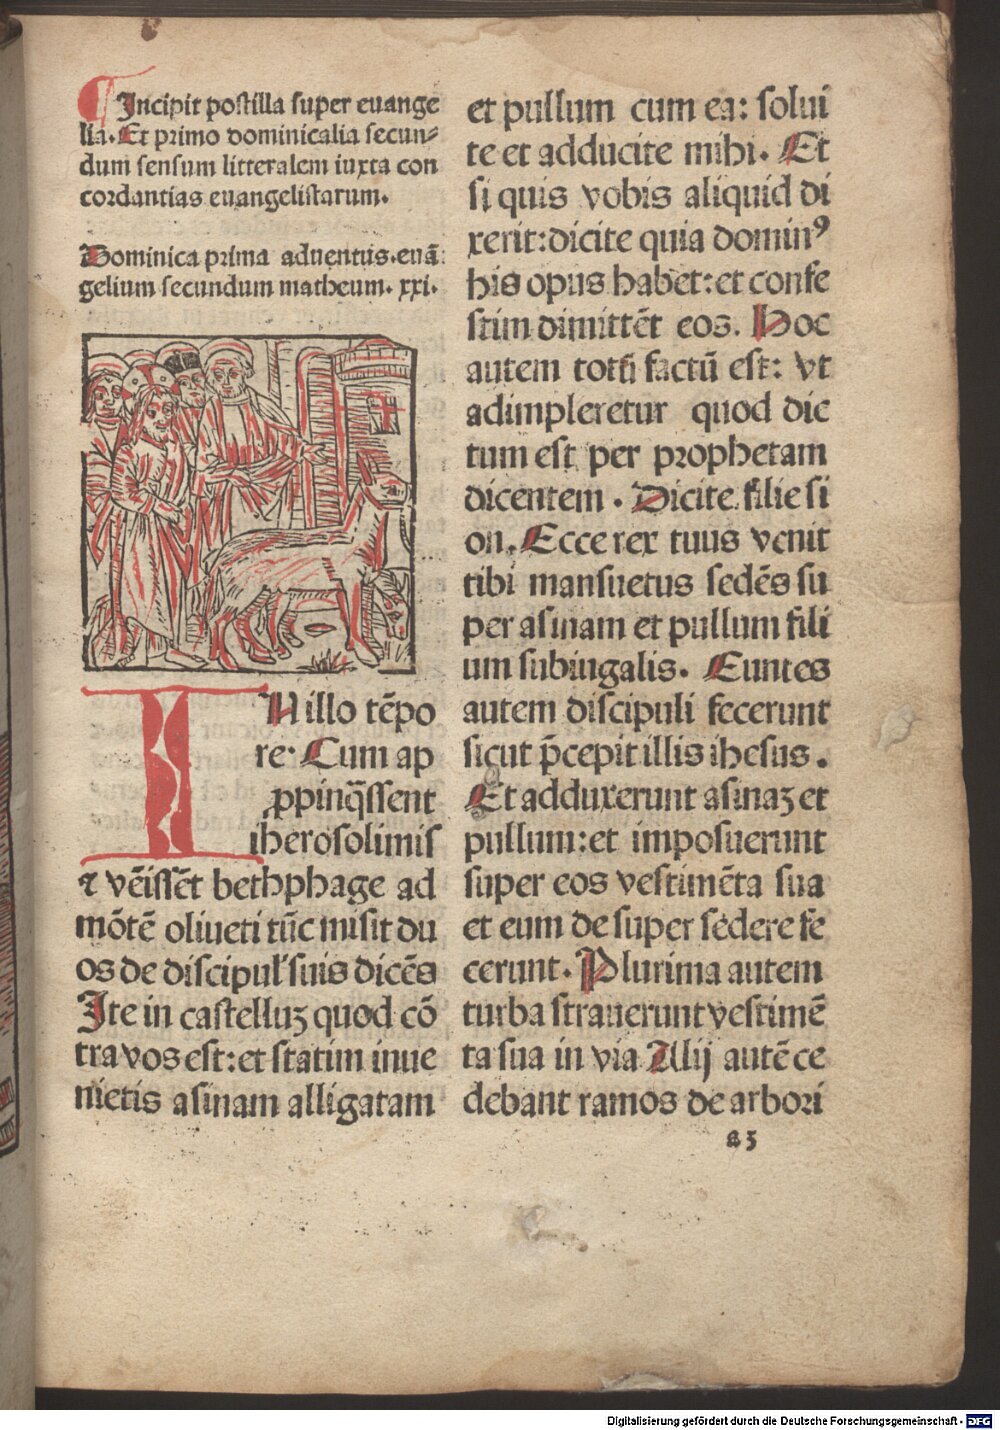 ¶ Incipit postilla super euange
lia. Et primo dominicalia secun-
dum sensum litteralem iuxta con
cordantias euangelistarum.
Dominica prima aduentus. euā
gelium secundum matheum. xxi.
IN illo tēpo
re: Cum ap
ꝓpinq̄ssent
iherosolimis
⁊ vēissēt bethphage ad
mōtē oliueti tūc misit du
os de discipul' suis dicēs
Ite in castelluꝫ quod cō
tra vos est: et statim inue
nietis asinam alligatam
et pullum cum ea: solui
te et adducite mihi. Et
si quis vobis aliquid di
xerit: dicite quia dominꝰ
his opus habet: et confe
stim dimittēt eos. Hoc
autem totū factū est: vt
adimpleretur quod dic
tum est per prophetam
dicentem. Dicite filie si
on. Ecce rex tuus venit
tibi mansuetus sedēs su
per asinam et pullum fili
um subiugalis. Euntes
autem discipuli fecerunt
sicut p̄cepit illis ihesus.
Et adduxerunt asinaꝫ et
pullum: et imposuerunt
super eos vestimēta sua
et eum de super sedere fe
cerunt. Plurima autem
turba strauerunt vestimē
ta sua in via Alij autē ce
debant ramos de arbori
a3
Digitalisierung gefördert durch die Deutsche Forschungsgemeinschaft - DFG